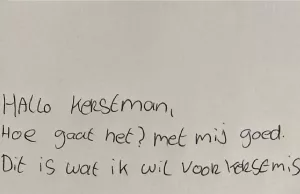 HALLO kerstman,
Hoe gaat het? met mij goed.
Dit is wat ik wil voor kerstmis